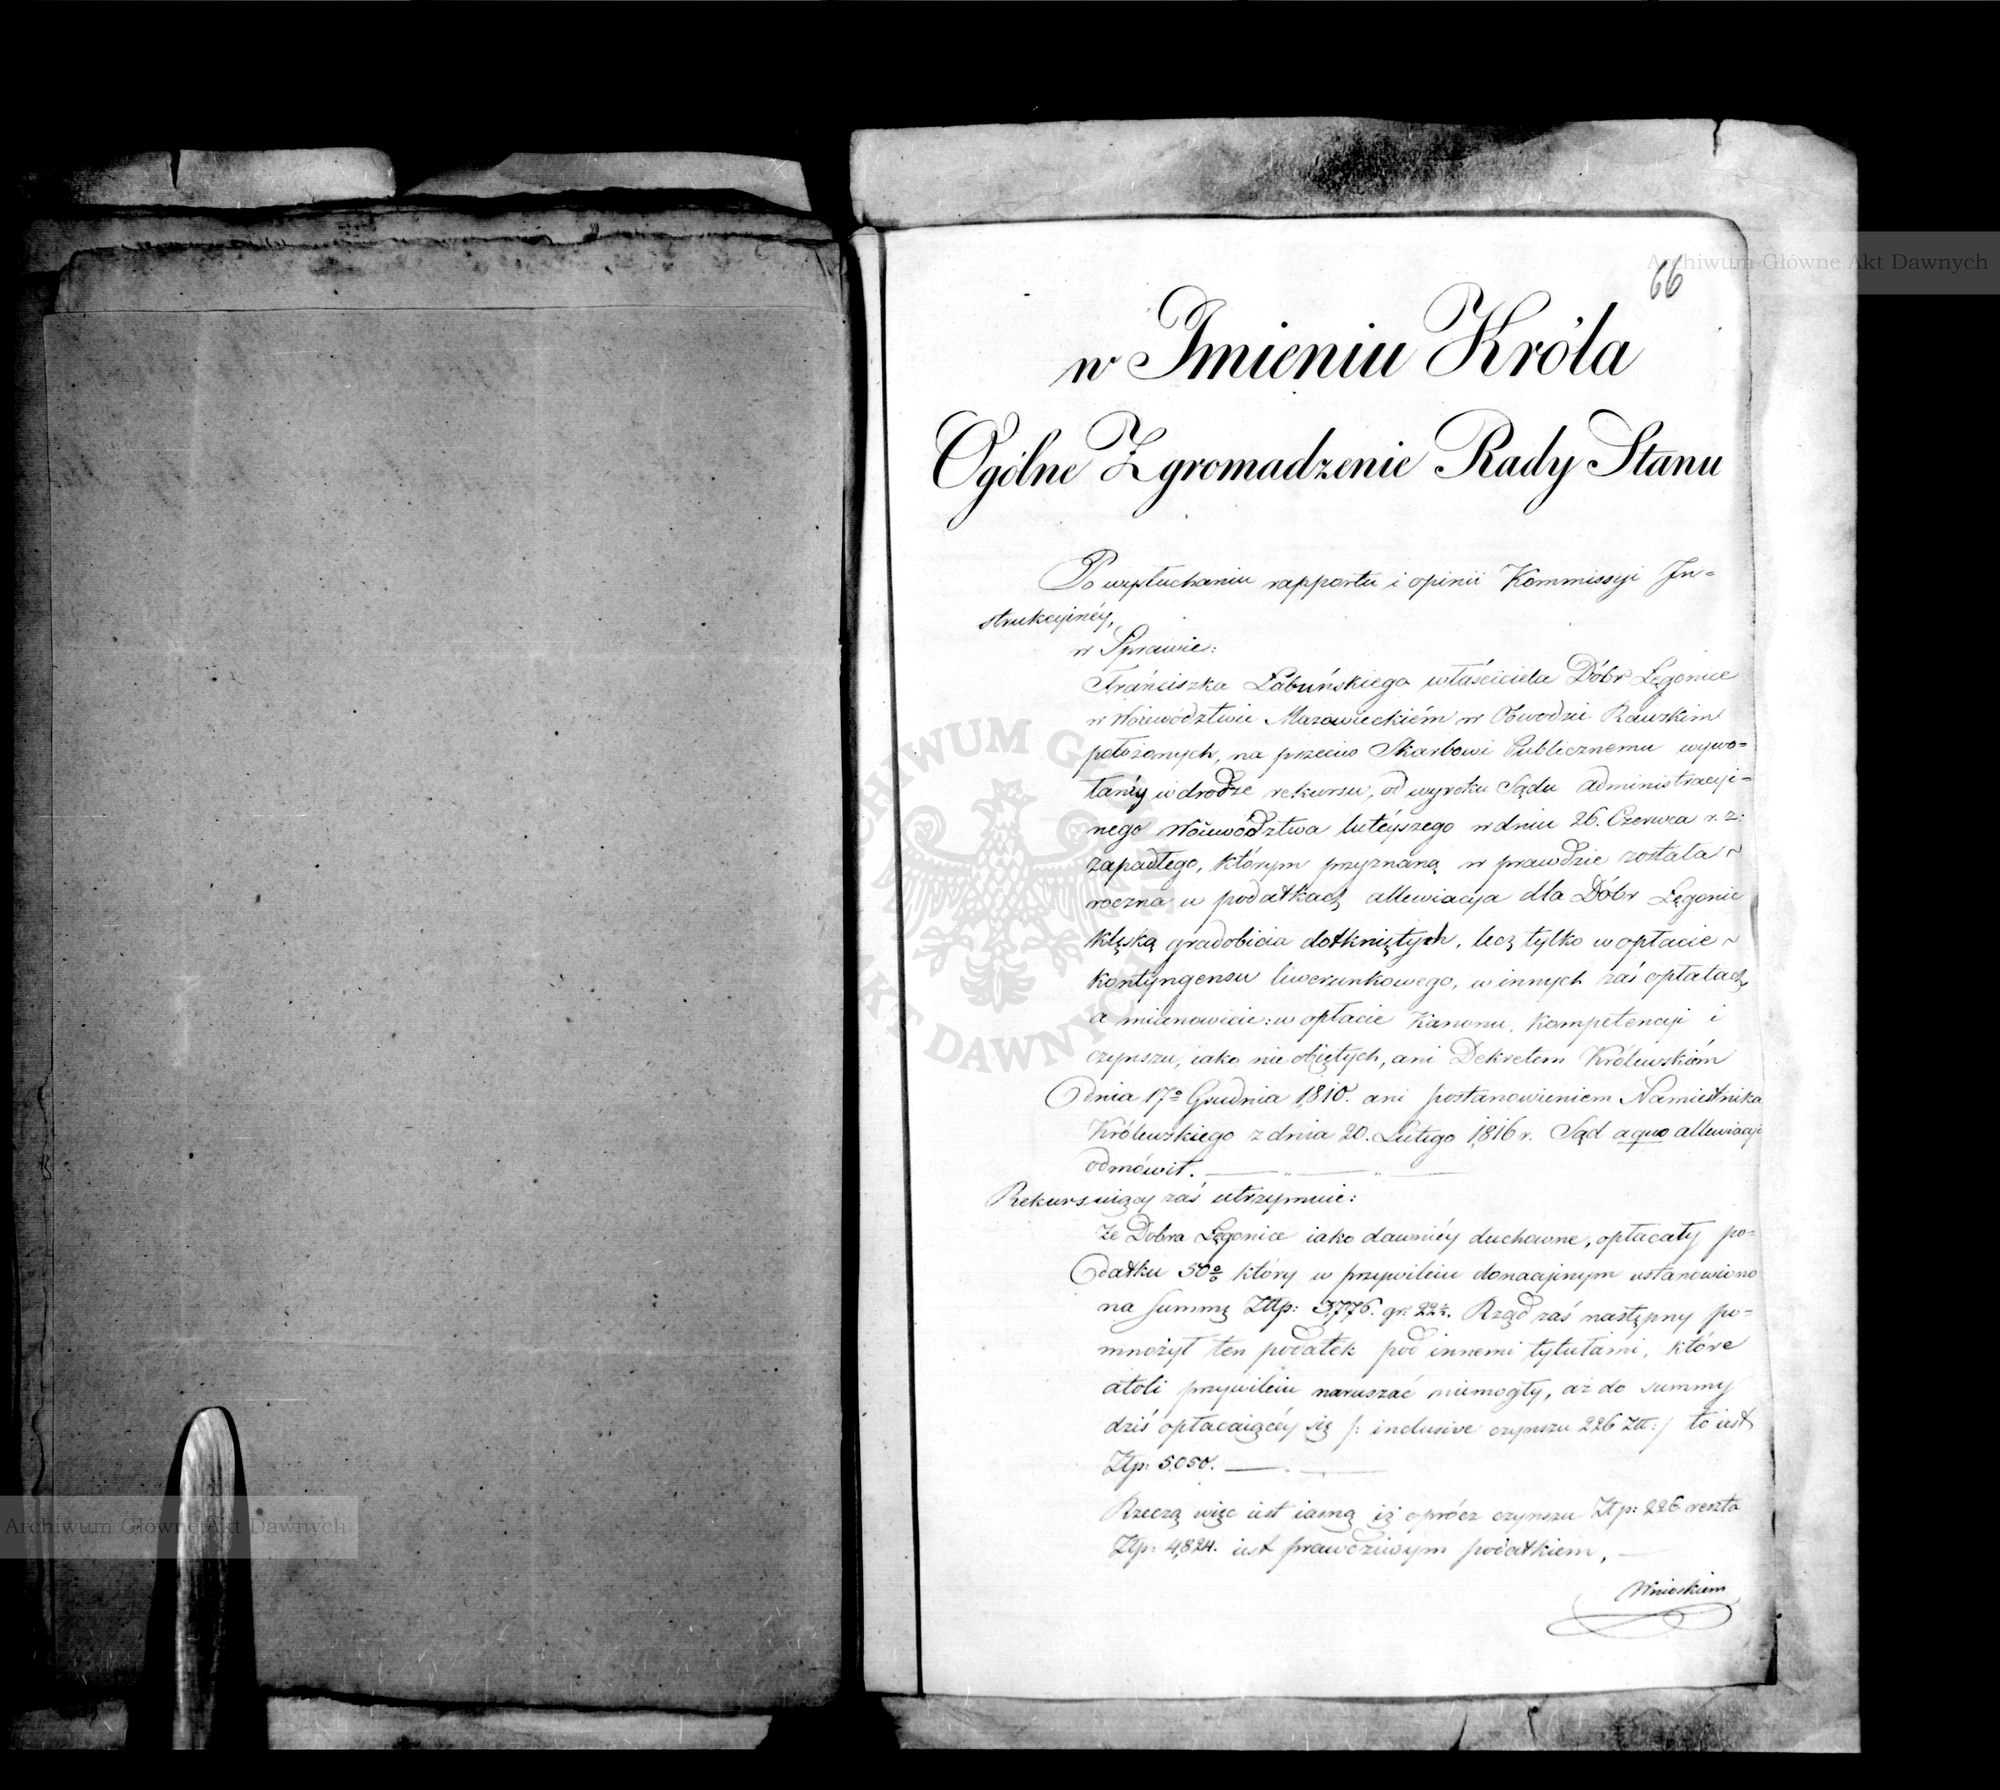 Archiwum Główne Akt Dawnych
66
w Imieniu Króla
Ogólne Zgromadzenie Rady Stanu
Po wysłuchaniu rapportu i opinii Kommissyi In=
strukcyinéy,
w Sprawie:
Franciszka Łabuńskiego właściciela Dóbr Łęgonice
w Woiewództwie Mazowieckiém w Obwodzie Rawskim
położonych, na przeciw Skarbowi Publicznemu wywo=
łanéy w drodze rekursu, od wyroku Sądu Administracyi=
nego Woiewództwa tutéyszego w dniu 26. Czerwca r. z.
zapadłego, którym przyznaną w prawdzie została
roczna w podatkach allewiacya dla Dóbr Łęgonic
klęską gradobicia dotkniętych, lecz tylko w opłacie
kontyngensu liwerunkowego, w innych zaś opłatach
a mianowicie: w opłacie Kanonu, kompetencyi i
czynszu, iako nie obiętych, ani Dekretem Królewskiém
dnia 17º Grudnia 1810. ani postanowieniem Namiestnika
Królewskiego z dnia 20. Lutego 1816 r. Sąd a quo allewiacyi
odmówił.
Rekursuiący zaś utrzymuie:
że Dobra Łęgonice iako dawniéy duchowne, opłacały po=
datku 50% który w przywileiu donacyinym ustanowiono
na Summę Złtp: 3,776. gr. 22½. Rząd zaś następny po=
mnożył ten podatek pod innemi tytułami, które
atoli przywileiu naruszać niemogły, aż do summy
dziś opłacaiącéy się /: inclusive czynszu 226 Złt: / to iest
Złp: 5,050.
Rzeczą więc iest iasną iż oprócz czynszu Złp: 226 reszta
Złp: 4,824. iest prawdziwym podatkiem,
Wnioskiem
ARCHIWUM GŁÓWNE AKT DAWNYCH
Archiwum Główne Akt Dawnych